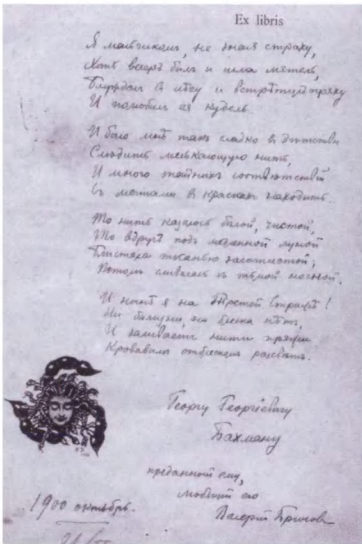 Ex libris
Я мальчикомъ, не зная страху,
Хоть вечеръ былъ и шла мятель,
Блуждалъ въ лѣсу и встрѣтилъ пряху
И полюбилъ ея кудель.
И было мнѣ такъ сладко въ дѣтствѣ
Слѣдить мелькающую нить,
И много тайныхъ соотвѣтствій
Съ мечтами въ краскахъ находить.
То нить казалась бѣлой, чистой,
То вдругъ подъ лунной
Блистала тканью серебристой,
Потомъ сливалась съ тьмой ночной.
И нынѣ я на третьей стражѣ!
Ни бѣлизны, ни блеска нѣтъ,
И заливаетъ нити пряжи
Кровавымъ отблескомъ разсвѣтъ.
Георгу Георгіевичу
Бахману
преданный ему,
любящій его
Валерій Брюсовъ
1900 октябрь.